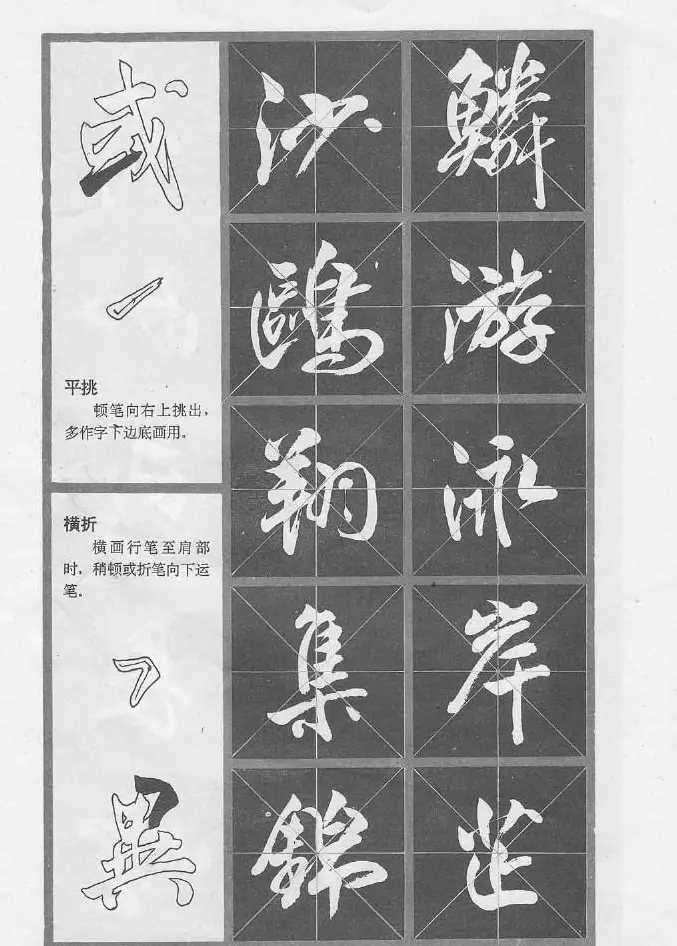 或
平挑
顿笔向右上挑出，
多作字下边底画用。
横折
横画行笔至肩部
时，稍顿或折笔向下运
笔。
異
沙
鷗
翔
集
錦
鱗
游
泳
岸
芷